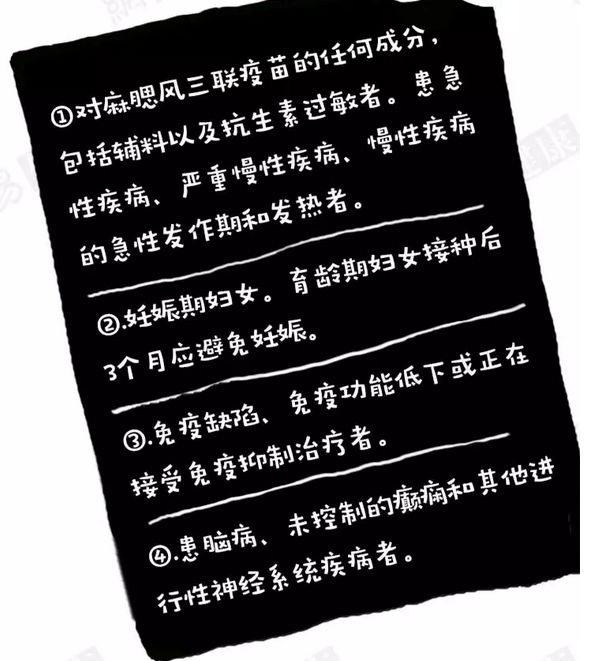 ①对麻腮风三联疫苗的任何成分，
包括辅料以及抗生素过敏者。患急
性疾病、严重慢性疾病、慢性疾病
的急性发作期和发热者。
②.妊娠期妇女。育龄期妇女接种后
3个月应避免妊娠。
③.免疫缺陷、免疫功能低下或正在
接受免疫抑制治疗者。
④.患脑病、未控制的癫痫和其他进
行性神经系统疾病者。